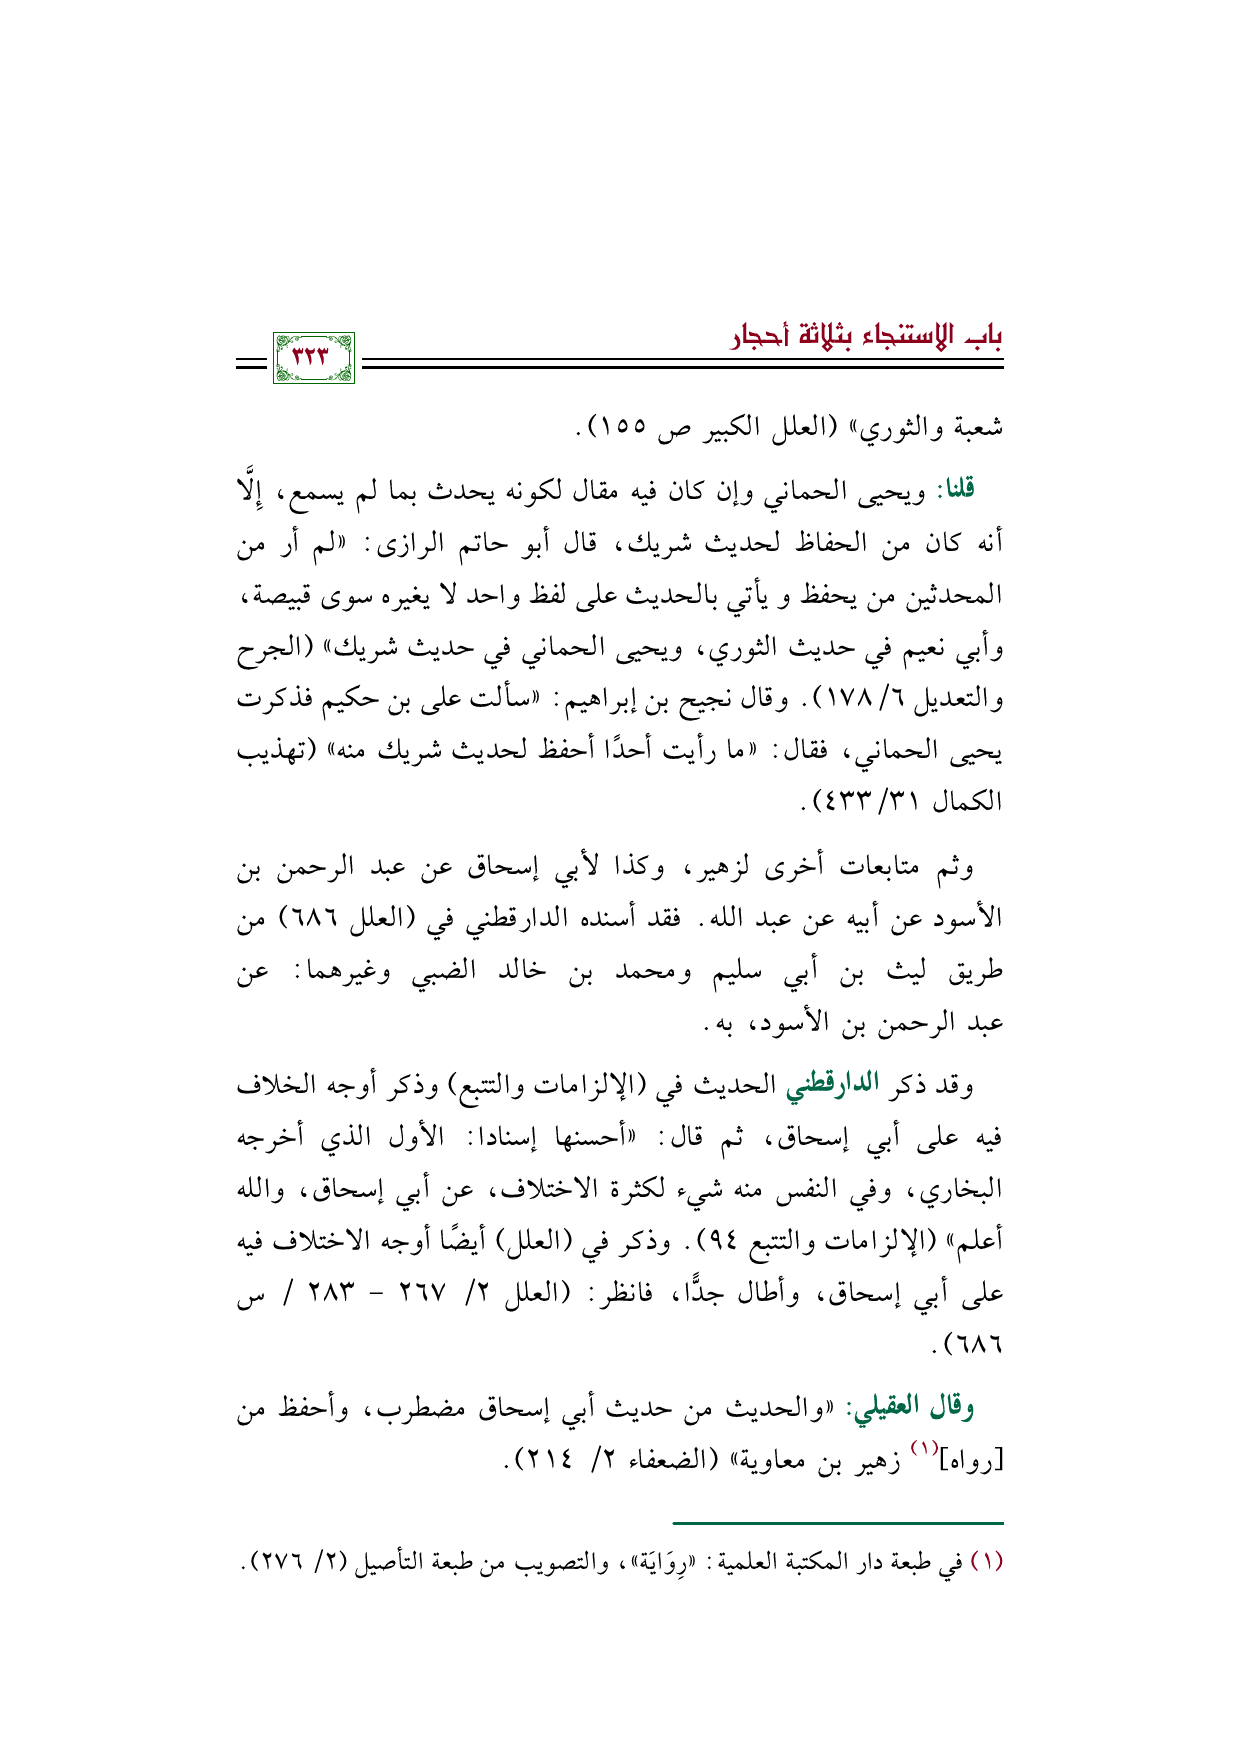 باب الاستنجاء بثلاثة أحجار
٣٢٣
شعبة والثوري» (العلل الكبير ص ١٥٥).
قلنا: ويحيى الحماني وإن كان فيه مقال لكونه يحدث بما لم يسمع، إِلَّا
أنه كان من الحفاظ لحديث شريك، قال أبو حاتم الرازى: «لم أر من
المحدثين من يحفظ و يأتي بالحديث على لفظ واحد لا يغيره سوى قبيصة،
وأبي نعيم في حديث الثوري، ويحيى الحماني في حديث شريك» (الجرح
والتعديل ٦/ ١٧٨). وقال نجيح بن إبراهيم: «سألت على بن حكيم فذكرت
يحيى الحماني، فقال: «ما رأيت أحدًا أحفظ لحديث شريك منه» (تهذيب
الكمال ٣١/ ٤٣٣).
وثم متابعات أخرى لزهير، وكذا لأبي إسحاق عن عبد الرحمن بن
الأسود عن أبيه عن عبد الله. فقد أسنده الدارقطني في (العلل ٦٨٦) من
طريق ليث بن أبي سليم ومحمد بن خالد الضبي وغيرهما: عن
عبد الرحمن بن الأسود، به.
وقد ذكر الدارقطني الحديث في (الإلزامات والتتبع) وذكر أوجه الخلاف
فيه على أبي إسحاق، ثم قال: «أحسنها إسنادا: الأول الذي أخرجه
البخاري، وفي النفس منه شيء لكثرة الاختلاف، عن أبي إسحاق، والله
أعلم» (الإلزامات والتتبع ٩٤). وذكر في (العلل) أيضًا أوجه الاختلاف فيه
على أبي إسحاق، وأطال جدًّا، فانظر: (العلل ٢/ ٢٦٧ – ٢٨٣ / س
٦٨٦).
وقال العقيلي: «والحديث من حديث أبي إسحاق مضطرب، وأحفظ من
[رواه](١) زهير بن معاوية» (الضعفاء ٢/ ٢١٤).
(١) في طبعة دار المكتبة العلمية: «رِوَايَة»، والتصويب من طبعة التأصيل (٢/ ٢٧٦).